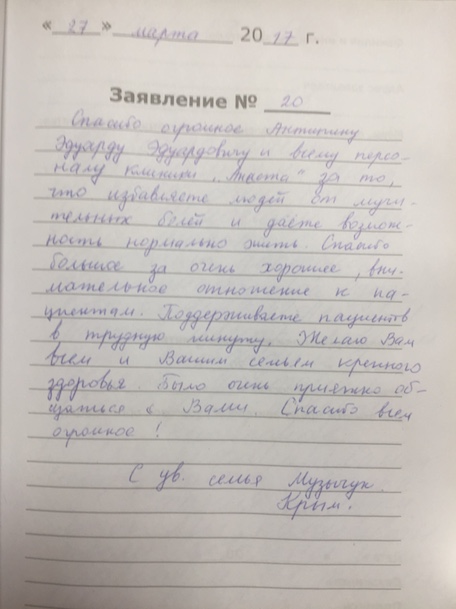 « 27 » марта 2017 г.
Заявление № 20
Спасибо огромное Антипину
Эдуарду Эдуардовичу и всему персо-
налу клиники „ " за то,
что избавляете людей от мучи-
тельных болей и даёте возмож-
ность нормально жить. Спасибо
большое за очень хорошее, вни-
мательное отношение к па-
циентам. Поддерживаете пациентов
в трудную минуту. Желаю Вам
всем и Вашим семьям крепкого
здоровья. Было очень приятно об-
щаться с Вами. Спасибо всем
огромное!
С ув. семья Музычук
Крым.